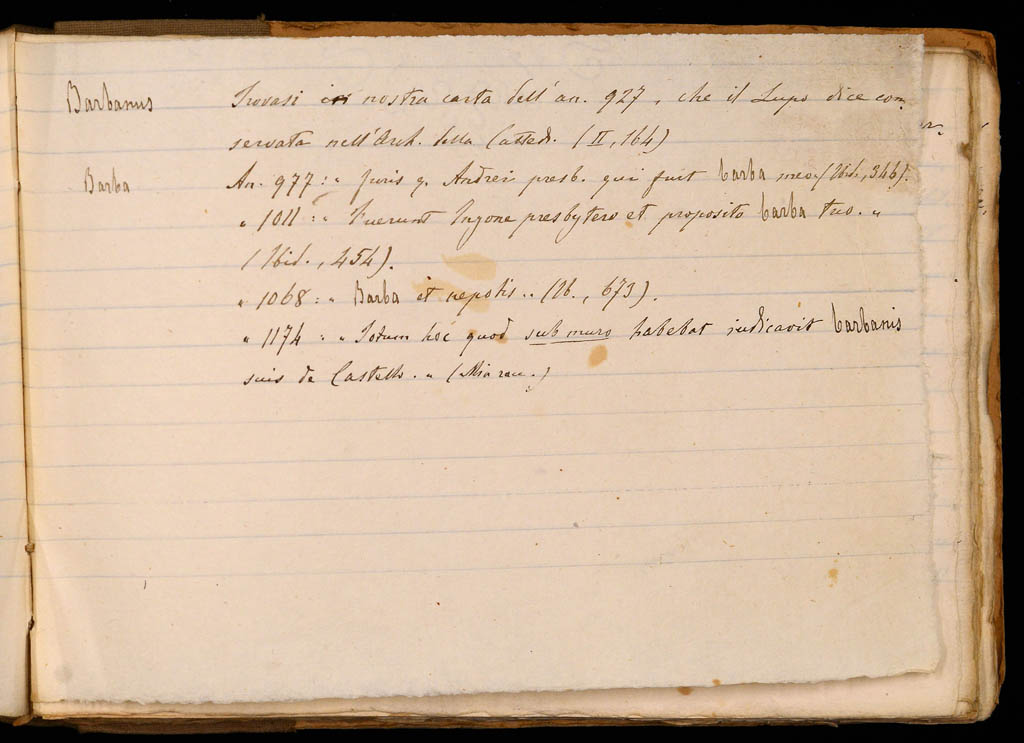 Barbanus Trovasi in nostra carta dell'an. 927, che il Lupo dice con-
servata nell'Arch. della Catted. (II, 164)
Barba An. 977: " Juris q. Andrei presb. qui fuit barba meo. (Ibid., 346).
" 1011: " Fuerunt Ingone presbytero et preposito barba tuo. "
(Ibid., 454).
" 1068: " Barba et nepotis " (Ib., 673).
" 1174: " Totum hoc quod sub muro habebat iudicavit barbanis
suis de Castello. " (Mia racc.)